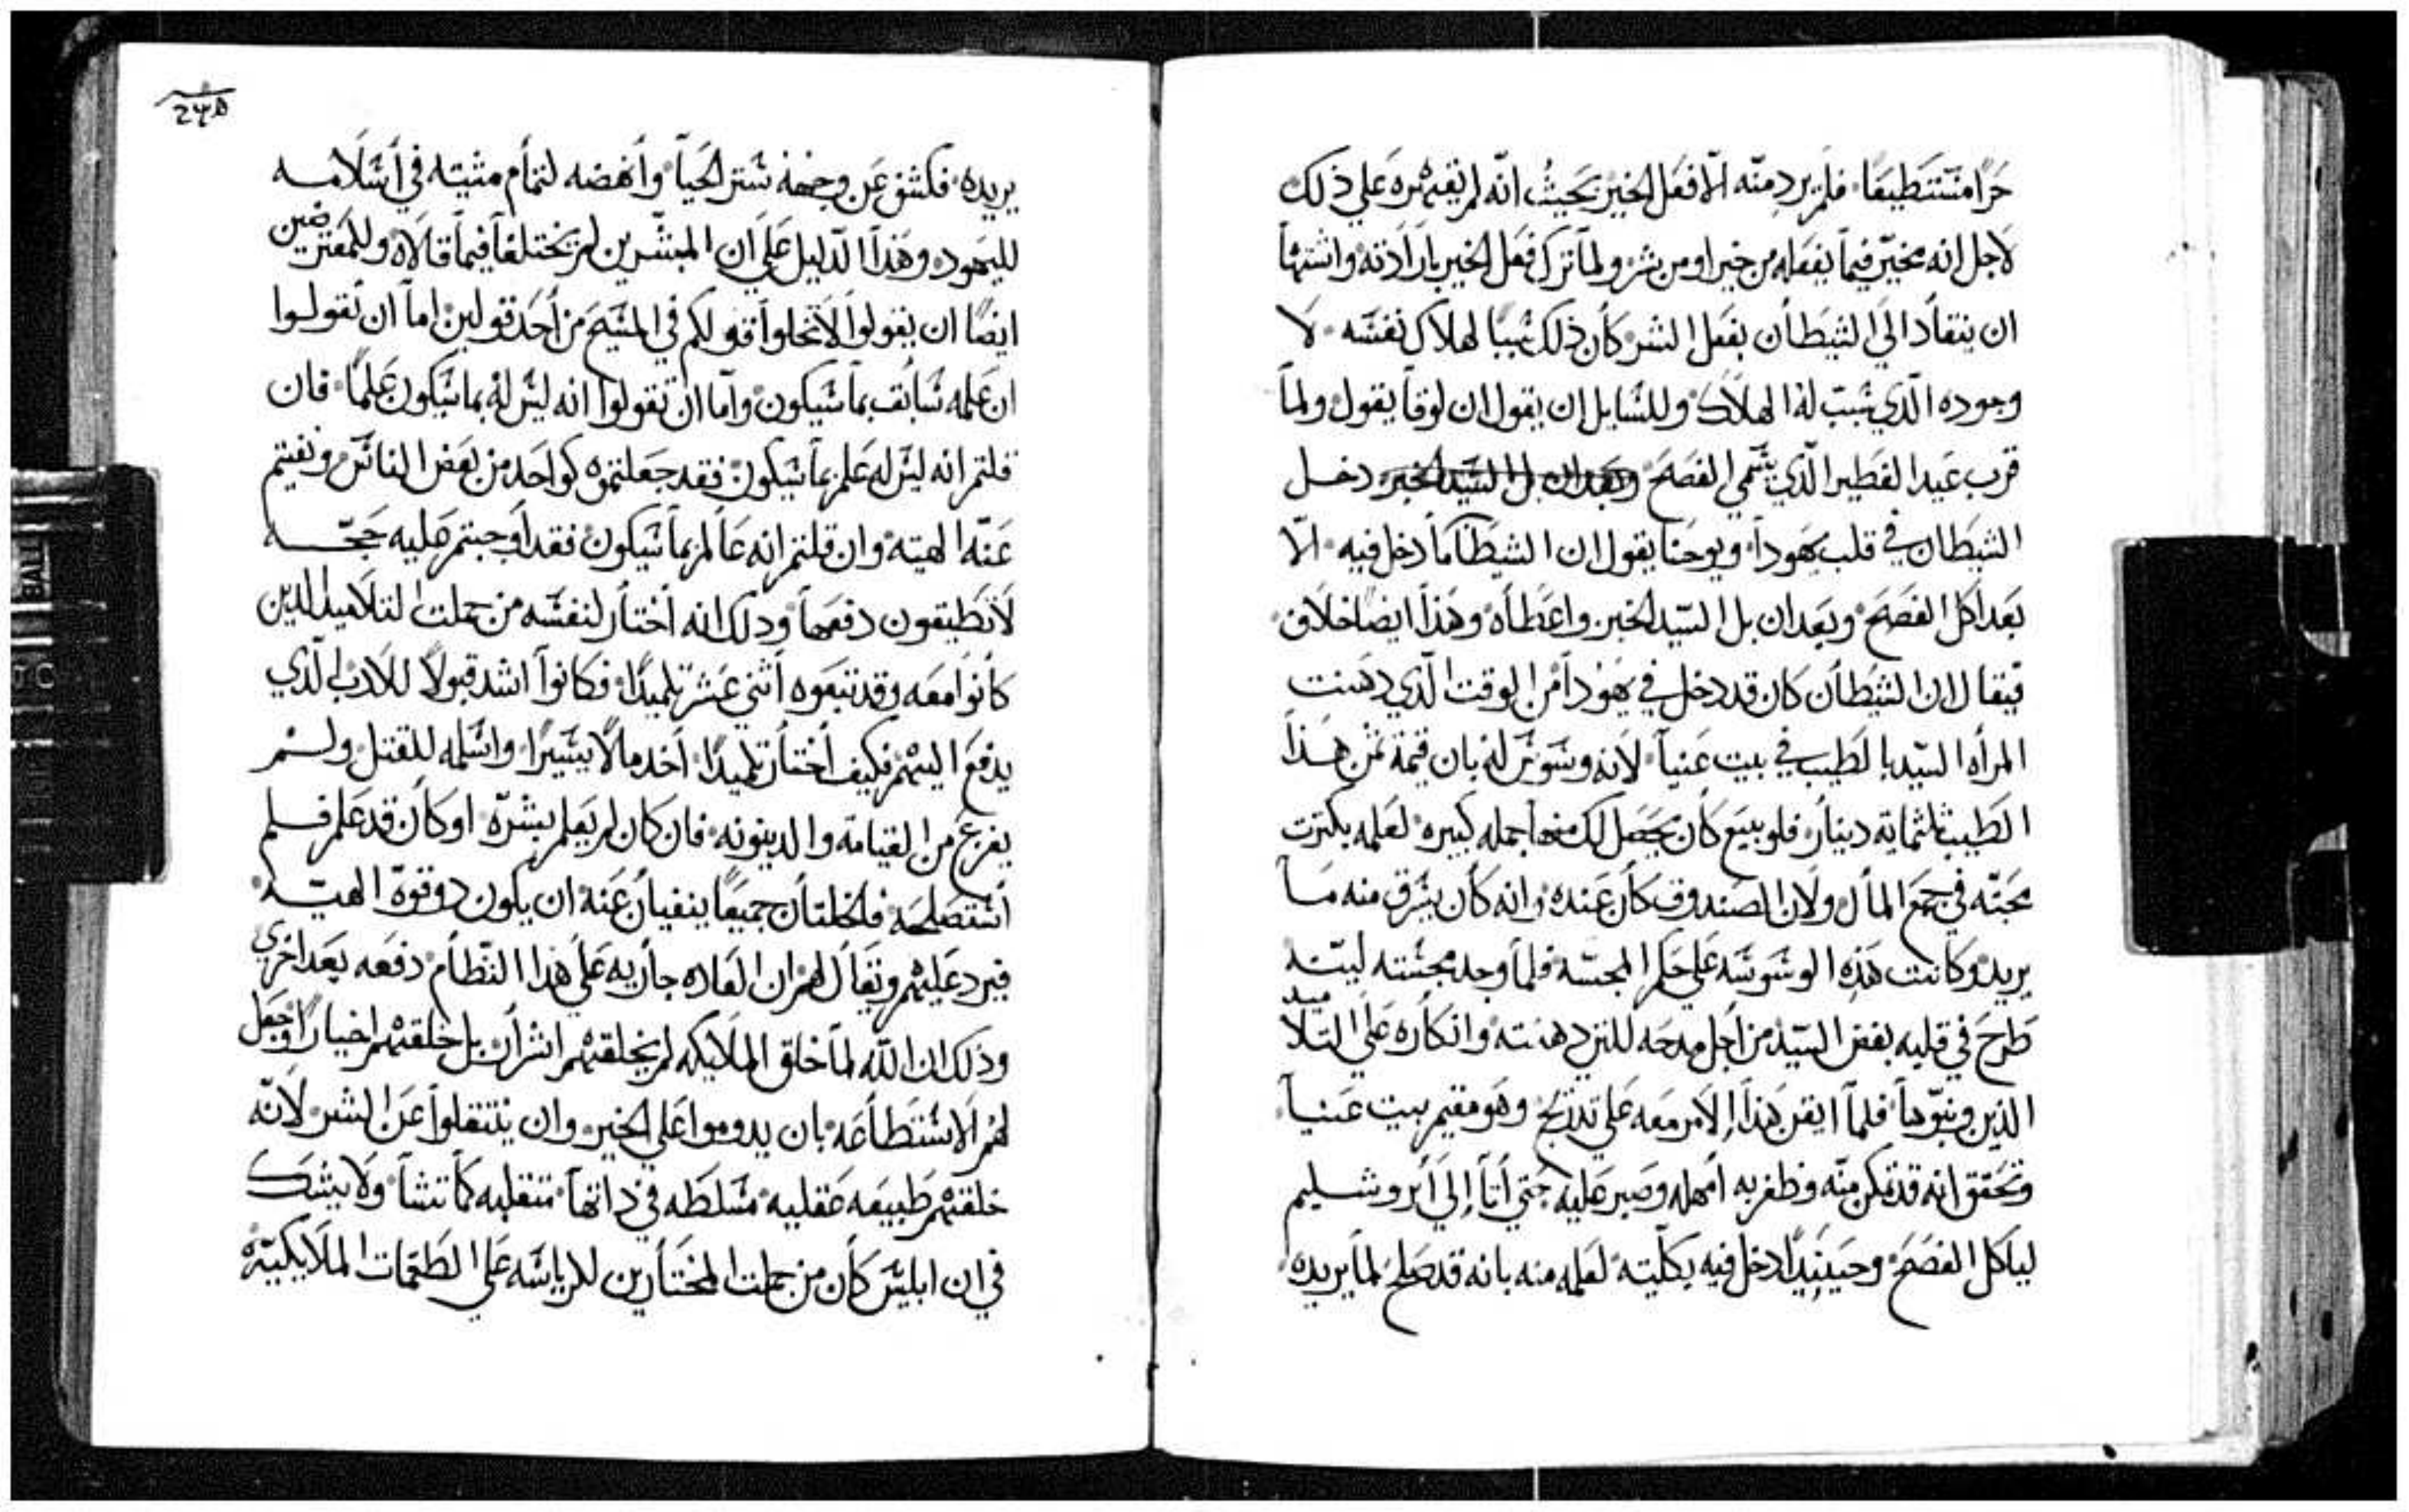 حرًا مستطيعًا فلم يرد منه الا فعل الخير بحيث انه لم يقهره علي ذلك
لاجل انه مخير فيما يفعله من خير او من شر ولما ترك فعل الخير بارادته واشتها
ان ينقاد الي الشيطان بفعل الشر كان ذلك سببًا لهلاك نفسه لا
وجوده الذي سبب له الهلاك وللسايل ان يقول ان لوقا يقول ولما
قرب عيد الفطير الذي يسمي الفصح وبعد ان بل السيد الخبز دخل
الشيطان في قلب يهودا ويوحنا يقول ان الشيطان ما دخل فيه الا
بعد اكل الفصح وبعد ان بل السيد الخبز واعطاه وهذا ايضا خلاف
فيقال ان الشيطان كان قد دخل في يهودا من الوقت الذي دهنت
المرأه السيد بالطيب في بيت عنيا لانه وسوس له بان قيمة ثمن هذا
الطيب ثلثماية دينار فلو بيع كان يحصل لك منها جمله كبيره لعلمه بكترت
محبته في جمع المال ولان الصندوق كان عنده وانه كان يسرق منه ما
يريد وكانت هذه الوسوسه علي حكم المجسه فلما وجد مجسته لينه
طرح في قلبه بغض السيد من اجل مدحه للتي دهنته وانكاره علي التلاميد
الذين وبنوها فلما ايقن هذا الامر معه علي تدريج وهو مقيم ببيت عنيا
وتحقق انه قد تمكن منه وظفر به امهله وصبر عليه حتي اتا الي ايروشليم
لياكل الفصح وحينيدًا دخل فيه بكليته لعلمه منه بانه قد صلح لما يريده
245
يريده فكشف عن وجهه ستر الحيا وأنهضه لتمام مشيته في أسلامه
لليهود وهذا الدليل علي ان المبشرين لم يختلفا فيما قالاه وللمعترضين
ايضًا ان يقولوا لا تخلوا قولكم في المسيح من أحد قولين اما ان تقولوا
ان علمه سابق بما سيكون واما ان تقولوا انه ليس له بما سيكون علمًا فان
قلتم انه ليس له علم بما سيكون فقد جعلتموه كواحد من بعض الناس ونفيتم
عنه الهيته وان قلتم انه عالم بما سيكون فقد أوجبتم عليه حجه
لا تطيقون دفعها ودلك انه اختار لنفسه من جملت التلاميد الدين
كانوا معه وقد تبعوه أثني عشر تلميدًا فكانوا اشد قبولًا للادب الذي
يدفع اليهم فكيف أختار تلميدًا أخد مالًا يسيرًا واسلمه للقتل ولم
يفزع من القيامة والدينونه فان كان لم يعلم بشره او كان قد علم فلم
أستصلحه فالخلتان جميعًا ينفيان عنه ان يكون دو قوة الهيه
فيرد عليهم ويقال لهم ان العاده جاريه علي هدا النظام دفعه بعد اخري
وذلك ان الله لما خلق الملايكه لم يخلقهم اشرار بل خلقهم اخيارًا وجعل
لهم الاستطاعه بان يدوموا علي الخير وان ينتقلوا عن الشر لانه
خلقهم طبيعه عقليه مسلطه في داتها متقلبه كما تشا ولا يشك
في ان ابليس كان من جملت المختارين للرياسه علي الطغمات الملايكيه